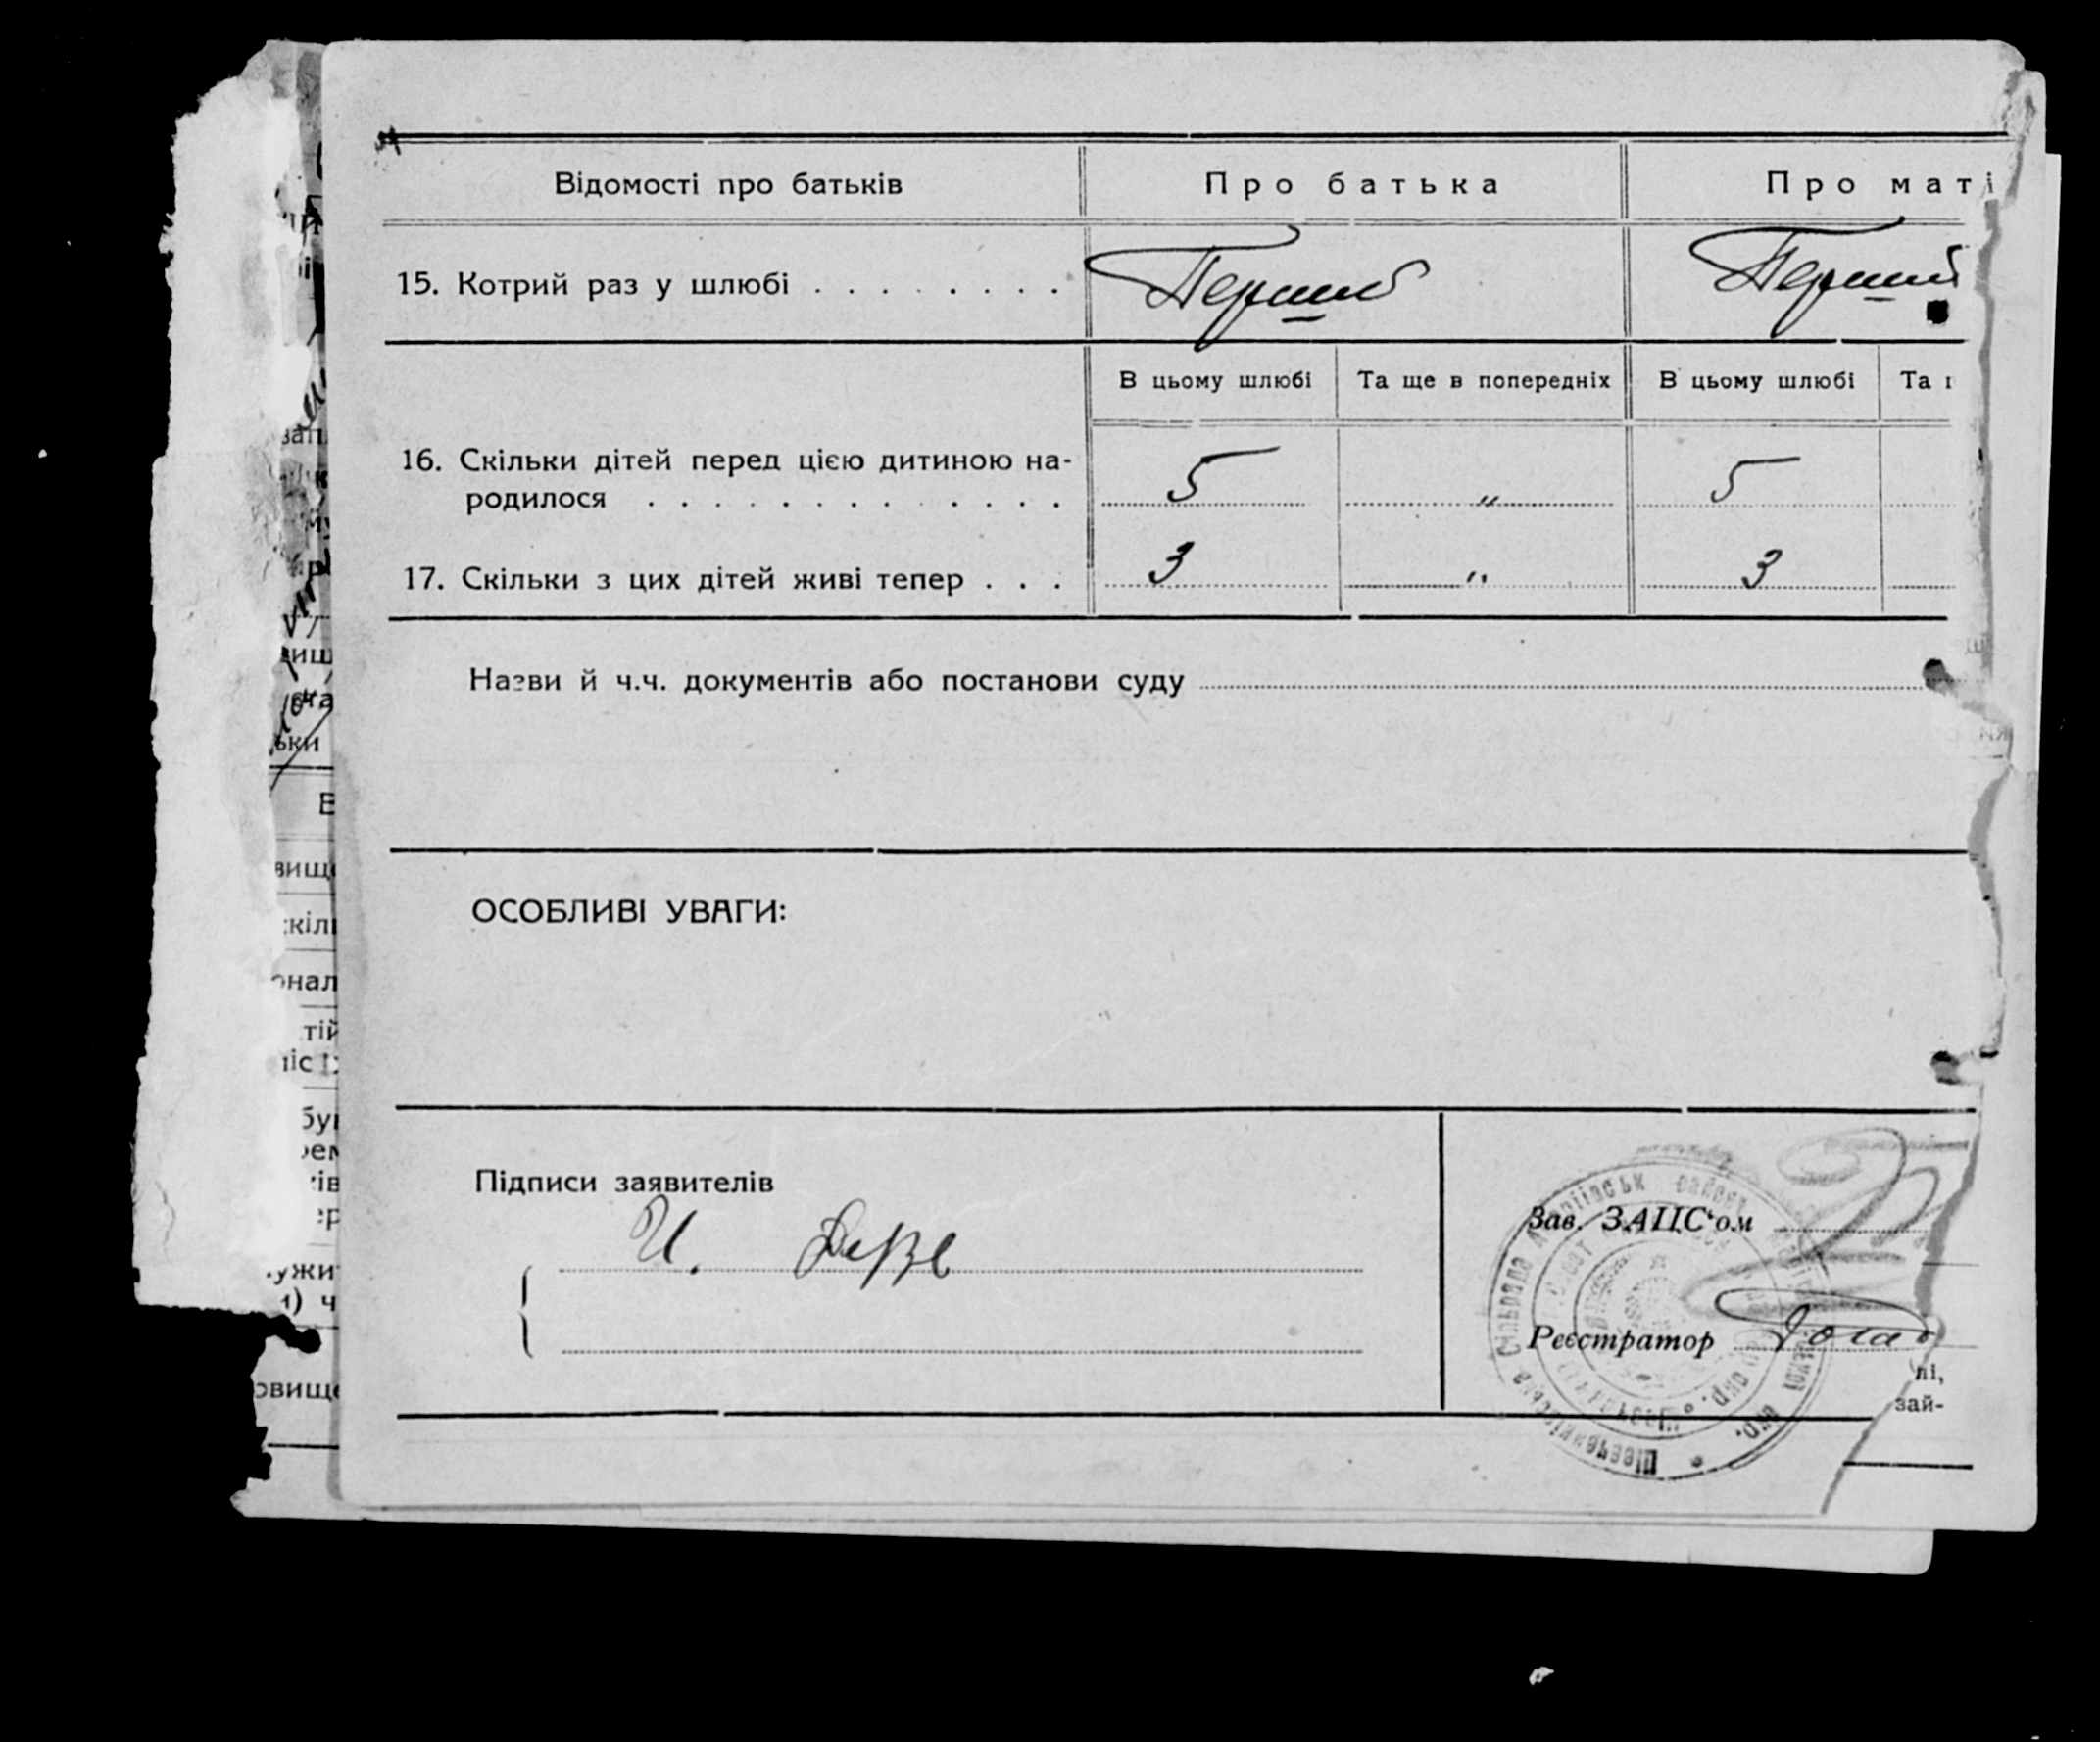 Відомості про батьків
Про батька
Про маті
15. Котрий раз у шлюбі . . . . . . . .
Перший
Перший
В цьому шлюбі
Та ще в попередніх
В цьому шлюбі
Та
16. Скільки дітей перед цією дитиною на-
родилося . . . . . . . . . . . . .
5
"
5
17. Скільки з цих дітей живі тепер . . .
3
"
3
Назви й ч.ч. документів або постанови суду
ОСОБЛИВІ УВАГИ:
Підписи заявителів
И.
Зав. ЗАЦС'ом
Реєстратор
лі,
зай-
вищ
ьки
В
вище
скіл
онал
тій
ужи
) ч
овище